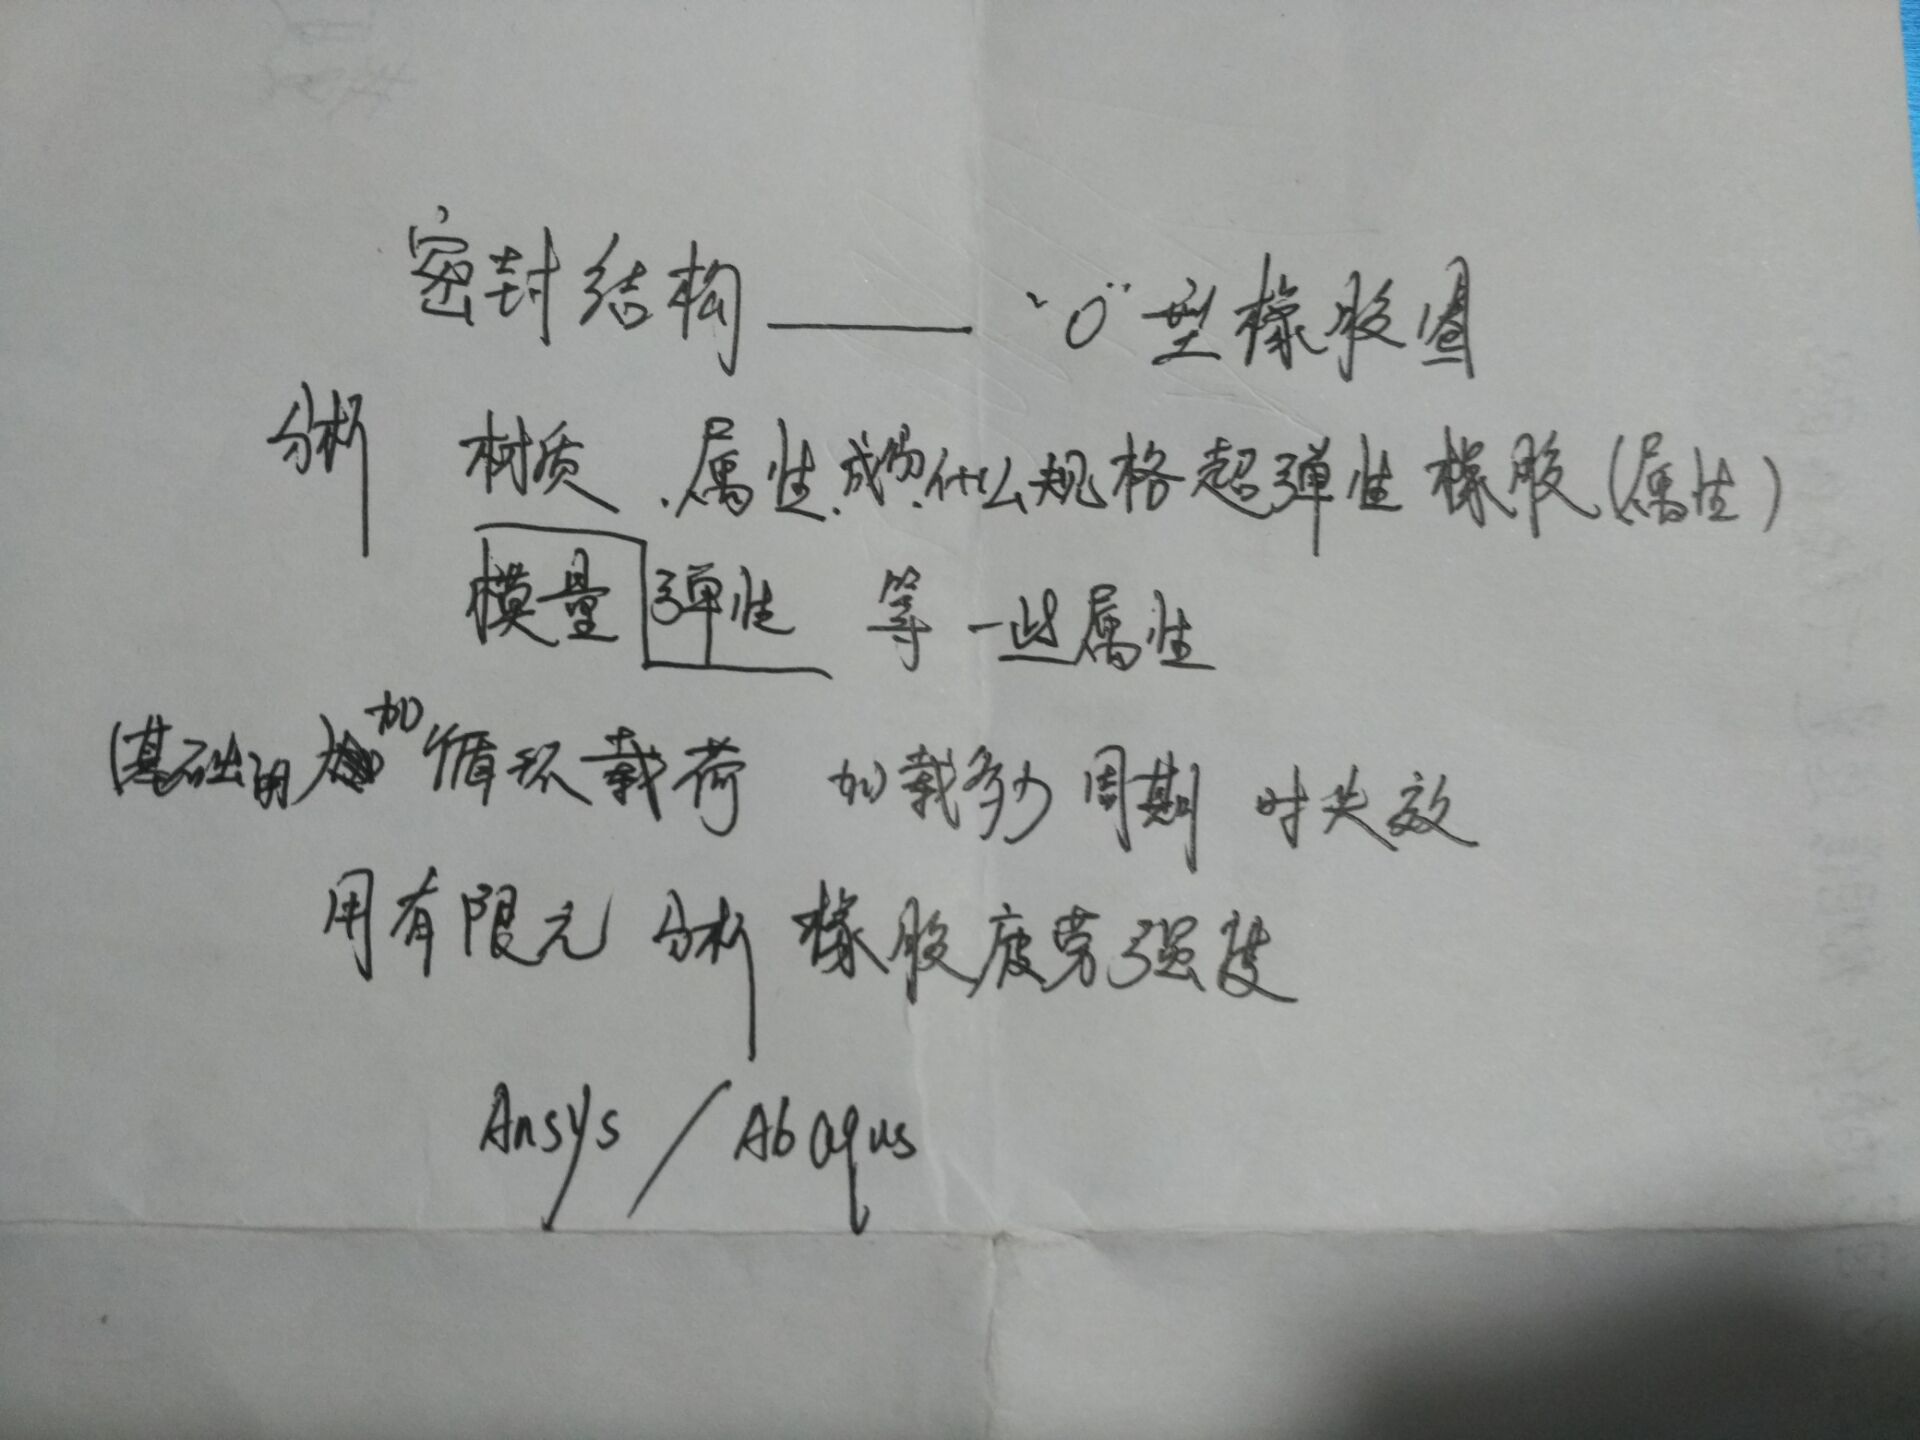 密封结构——"O"型橡胶圈
分析 材质、属性、成份、什么规格超弹性橡胶(属性)
模量 弹性 等一些属性
(基础的 加循环载荷 加载多少周期 时失效
用有限元 分析 橡胶疲劳强度
Ansys / Abaqus